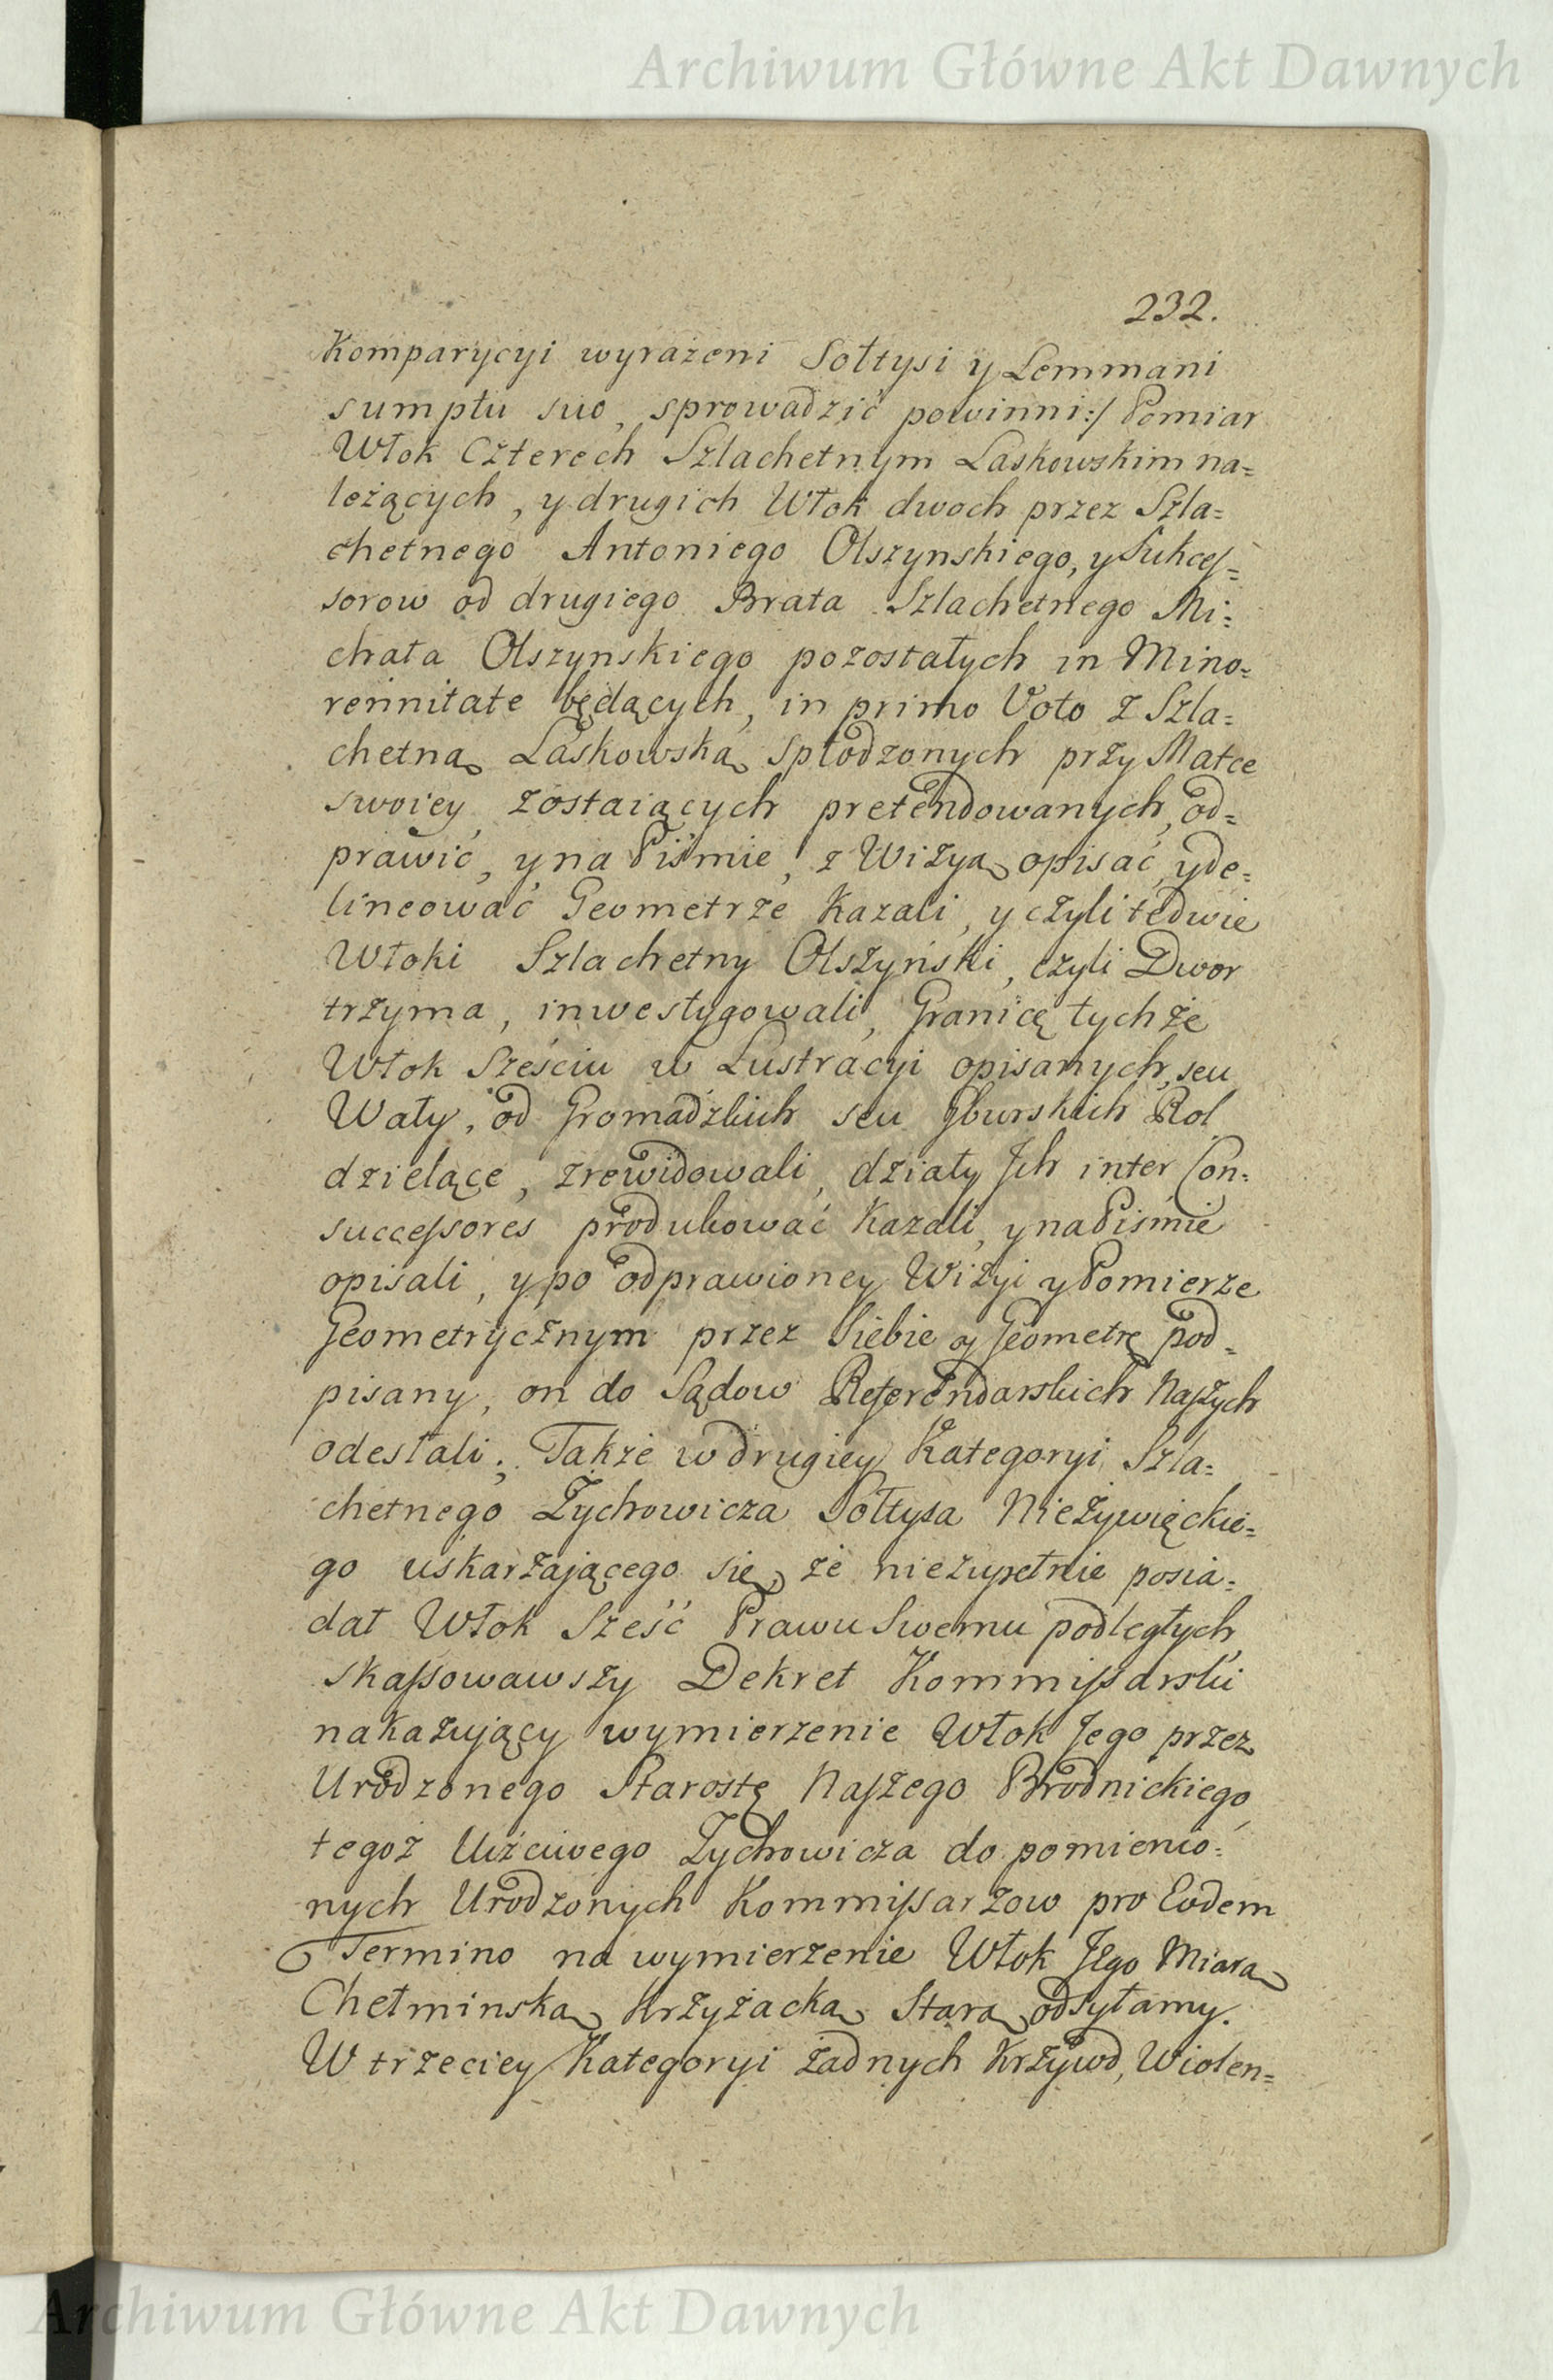 Archiwum Główne Akt Dawnych
232.
Komparycyi wyrażeni Sołtysi y Lemmani
sumptu suo, sprowadzić powinni:/ Pomiar
Włok Czterech Szlachetnym Laskowskim na=
leżących, y drugich Włok dwoch przez Szla=
chetnego Antoniego Olszynskiego, y Sukces=
sorow od drugiego Brata Szlachetnego Mi=
chała Olszynskiego pozostałych in Mino=
rennitate będących, in primo Voto z Szla=
chetną Laskowską spłodzonych przy Matce
swoiey zostaiących pretendowanych, od=
prawić, y na Piśmie, z Wizyą opisać, y de=
lineować Geometrze kazali, y czyli te dwie
Włoki Szlachetny Olszyński, czyli Dwor
trzyma, inwestygowali, Granicę tychże
Włok Sześciu w Lustracyi opisanych, seu
Wały, od Gromadzkich seu Gburskich Rol
dzielące, zrewidowali, działy Jch inter Con=
successores produkować kazali, y na Piśmie
opisali, y po odprawioney Wizyi y Pomierze
Geometrycznym przez Siebie y Geometrę pod=
pisany, on do Sądow Referendarskich Naszych
odesłali; Także w drugiey Kategoryi Szla=
chetnego Zychowicza Sołtysa Nieżywięckie=
go uskarżającego się, że niezupełnie posia=
dał Włok Sześć Prawu Swemu podległych
skassowawszy Dekret Kommissarski
nakazujący wymierzenie Włok Jego przez
Urodzonego Starostę Naszego Brodnickiego
tegoż Uczciwego Zychowicza do pomienio=
nych Urodzonych Kommissarzow pro Eodem
Termino na wymierzenie Włok Jego Miarą
Chełminską Krzyżacką Starą odsyłamy.
W trzeciey Kategoryi żadnych Krzywd, Wiolen=
Archiwum Główne Akt Dawnych